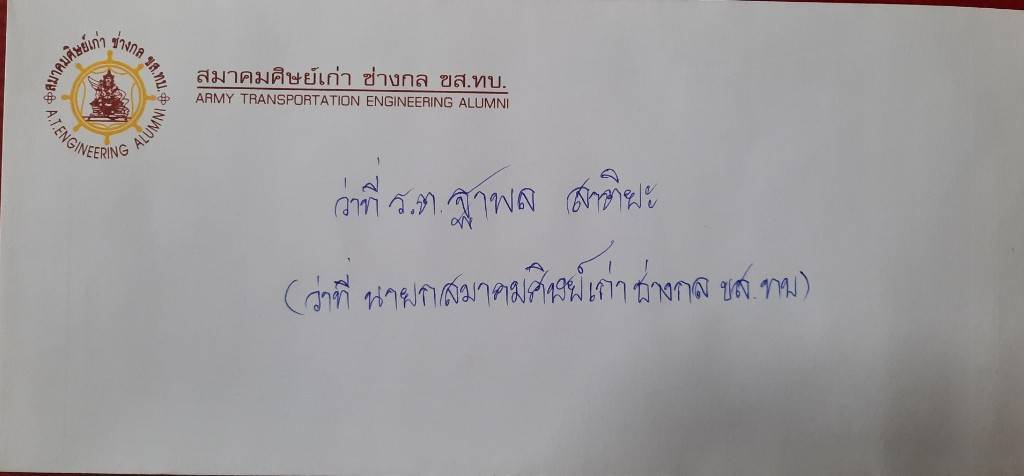 สมาคมศิษย์เก่า ช่างกล ขส.ทบ.
A.T.ENGINEERING ALUMNI
สมาคมศิษย์เก่า ช่างกล ขส.ทบ.
ARMY TRANSPORTATION ENGINEERING ALUMNI
ว่าที่ ร.ต. ฐาพล สาติยะ
(ว่าที่ นายกสมาคมศิษย์เก่า ช่างกล ขส.ทบ)